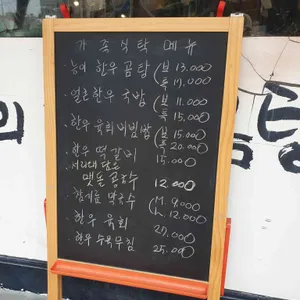 가족식탁 메뉴
농어 한우 곰탕 (보 13.000
특 17.000
얼큰한우 국밥 (보 11.000
특 15.000
한우 육회비빔밥 (보 15.000
특 20.000
한우 떡갈비 15.000
서리태 담은
맷돌 콩국수 12.000
들기름 막국수 (M. 9.000
L. 12.000
한우 육회 27.000
한우 수육무침 25.000
의
곰탕